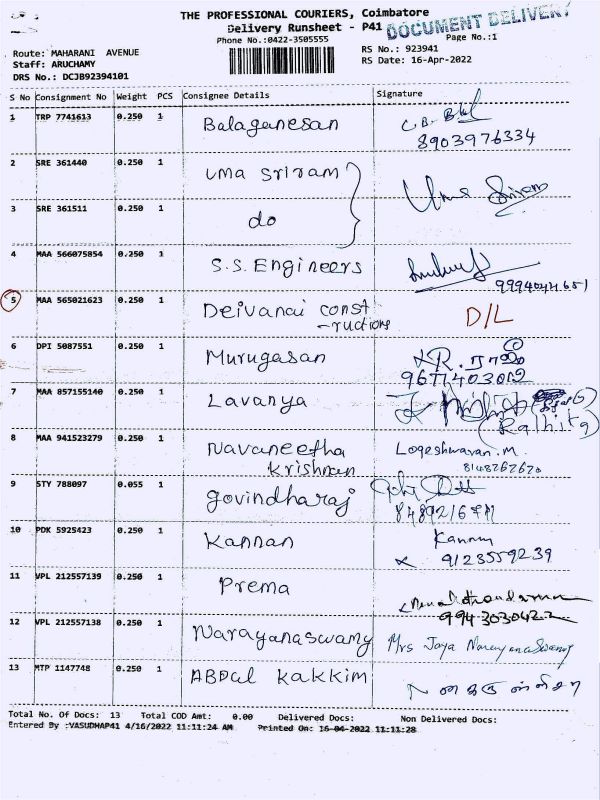 THE PROFESSIONAL COURIERS, Coimbatore
Delivery Runsheet - P41
DOCUMENT DELIVERY
Phone No.:0422-3505555
Page No.:1
Route: MAHARANI AVENUE
RS No.: 923941
Staff: ARUCHAMY
RS Date: 16-Apr-2022
DRS No.: DCJB92394101
S No Consignment No Weight PCS Consignee Details Signature
1 TRP 7741613 0.250 1 Balaganesan C.B.
8903976334
2 SRE 361440 0.250 1 Uma Sriram
Uma Sriram
3 SRE 361511 0.250 1 do
4 MAA 566075854 0.250 1 S.S. Engineers
5 MAA 565021623 0.250 1 Deivanai const D/L
-ructions
6 DPI 5087551 0.250 1 Murugasan
7 MAA 857155140 0.250 1 Lavanya
8 MAA 941523279 0.250 1 Navaneetha Logeshwaran.M
Krishnan 8148262620
9 STY 788097 0.055 1 Govindharaj
10 PDK 5925423 0.250 1 Kannan
9123559239
11 VPL 212557139 0.250 1 Prema
12 VPL 212557138 0.250 1 Narayanaswamy Mrs Jaya Narayanaswamy
13 MTP 1147748 0.250 1 ABDul Kakkim
Total No. Of Docs: 13 Total COD Amt: 0.00 Delivered Docs: Non Delivered Docs:
Entered By :VASUDHAP41 4/16/2022 11:11:24 AM Printed On: 16-04-2022 11:11:28